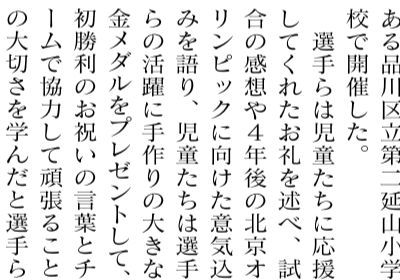 ある品川区立第二延山小学
校で開催した。
　選手らは児童たちに応援
してくれたお礼を述べ、試
合の感想や４年後の北京オ
リンピックに向けた意気込
みを語り、児童たちは選手
らの活躍に手作りの大きな
金メダルをプレゼントして、
初勝利のお祝いの言葉とチ
ームで協力して頑張ること
の大切さを学んだと選手ら